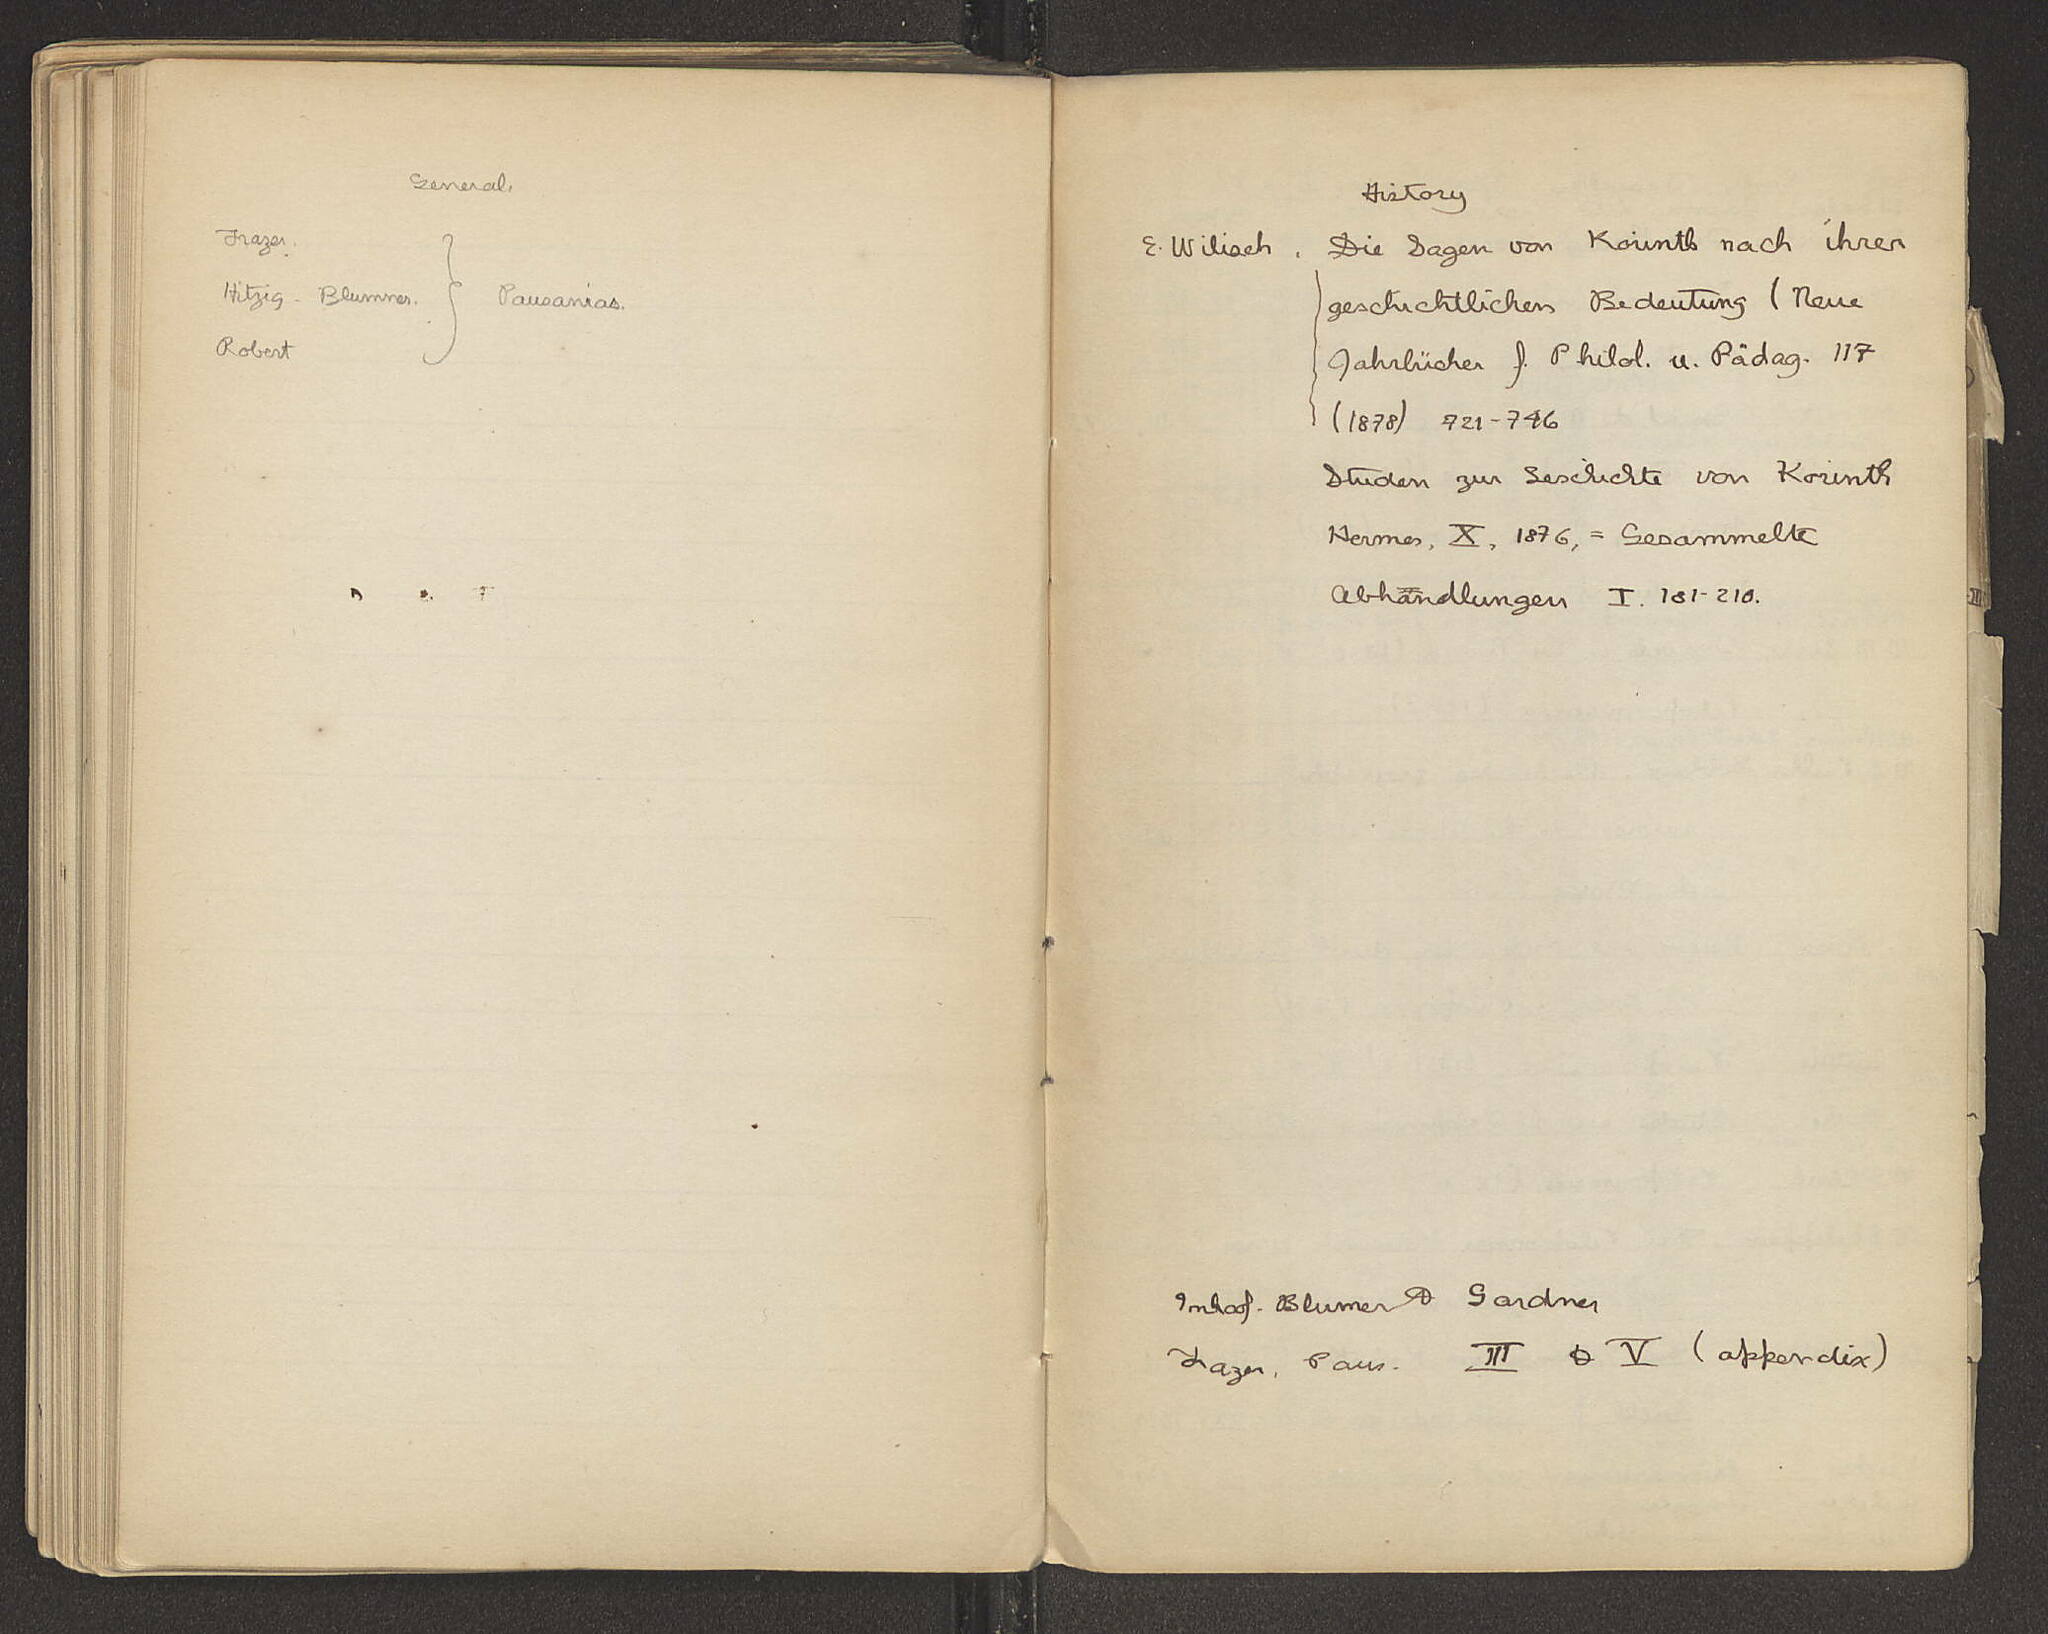 General.
Frazer.
Hitzig - Blumner. } Pausanias.
Robert
History
E. Wilisch. Die Sagen von Korinth nach ihrer
geschichtlichen Bedeutung (Neue
Jahrbücher f. Philol. u. Pädag. 117
(1878) 721-746
Studen zur Geschichte von Korinth
Hermes, X, 1876, = Gesammelte
Abhandlungen I. 181-210.
Imhoof-Blumer & Gardner
Frazer, Paus. III & V (appendix)